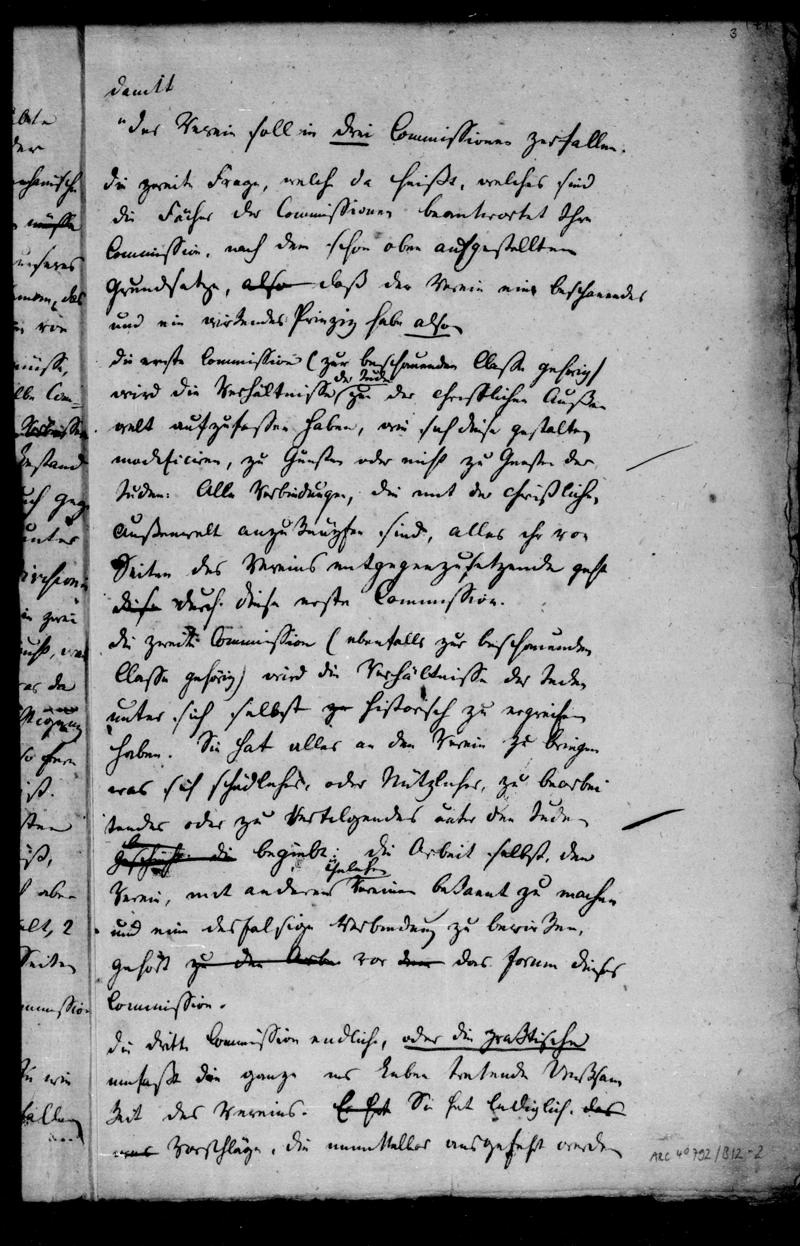 3
damit
"Der Verein soll in drei Commissionen zerfallen.
die zweite Frage, welche da heißt, welches sind
die Fächer der Commissionen beantwortet Ihre
Commission, nach dem schon oben aufgestellten
Grundsatze, also daß der Verein ein beschauendes
und ein wirkendes Prinzip habe also
die erste Commission (zur beschauenden Classe gehörig)
wird die Verhältnisse der Juden zu der christlichen Außen
welt aufzufassen haben, wie sich diese gestalten
modificiren, zu Gunsten oder nicht zu Gunsten der
Juden: Alle Verbindungen, die mit der christlichen
Außenwelt anzuknüpfen sind, alles ihr von
Seiten des Vereins entgegenzusetzende geht
diese durch diese erste Commission.
die zweite Commission (ebenfalls zur beschauenden
Classe gehörig) wird die Verhältnisse der Juden
unter sich selbst zu historisch zu ergreifen
haben. Sie hat alles an den Verein zu bringen
was sich schädliches, oder Nützliches, zu bearbei
tendes oder zu Vertilgendes unter den Juden
begiebt; die Arbeit selbst, den
Verein, mit anderen Vereinen bekannt zu machen
und eine desfalsige Verbindung zu bewirken,
gehört zu den vor dem das forum dieser
Commission.
die dritte Commission endlich, oder die praktische
umfaßt die ganze ins Leben tretende Wirksam
keit des Vereins. Sie hat lediglich das
was Vorschläge, die unmittelbar ausgeführt werden
ARC 4° 792/B12-2